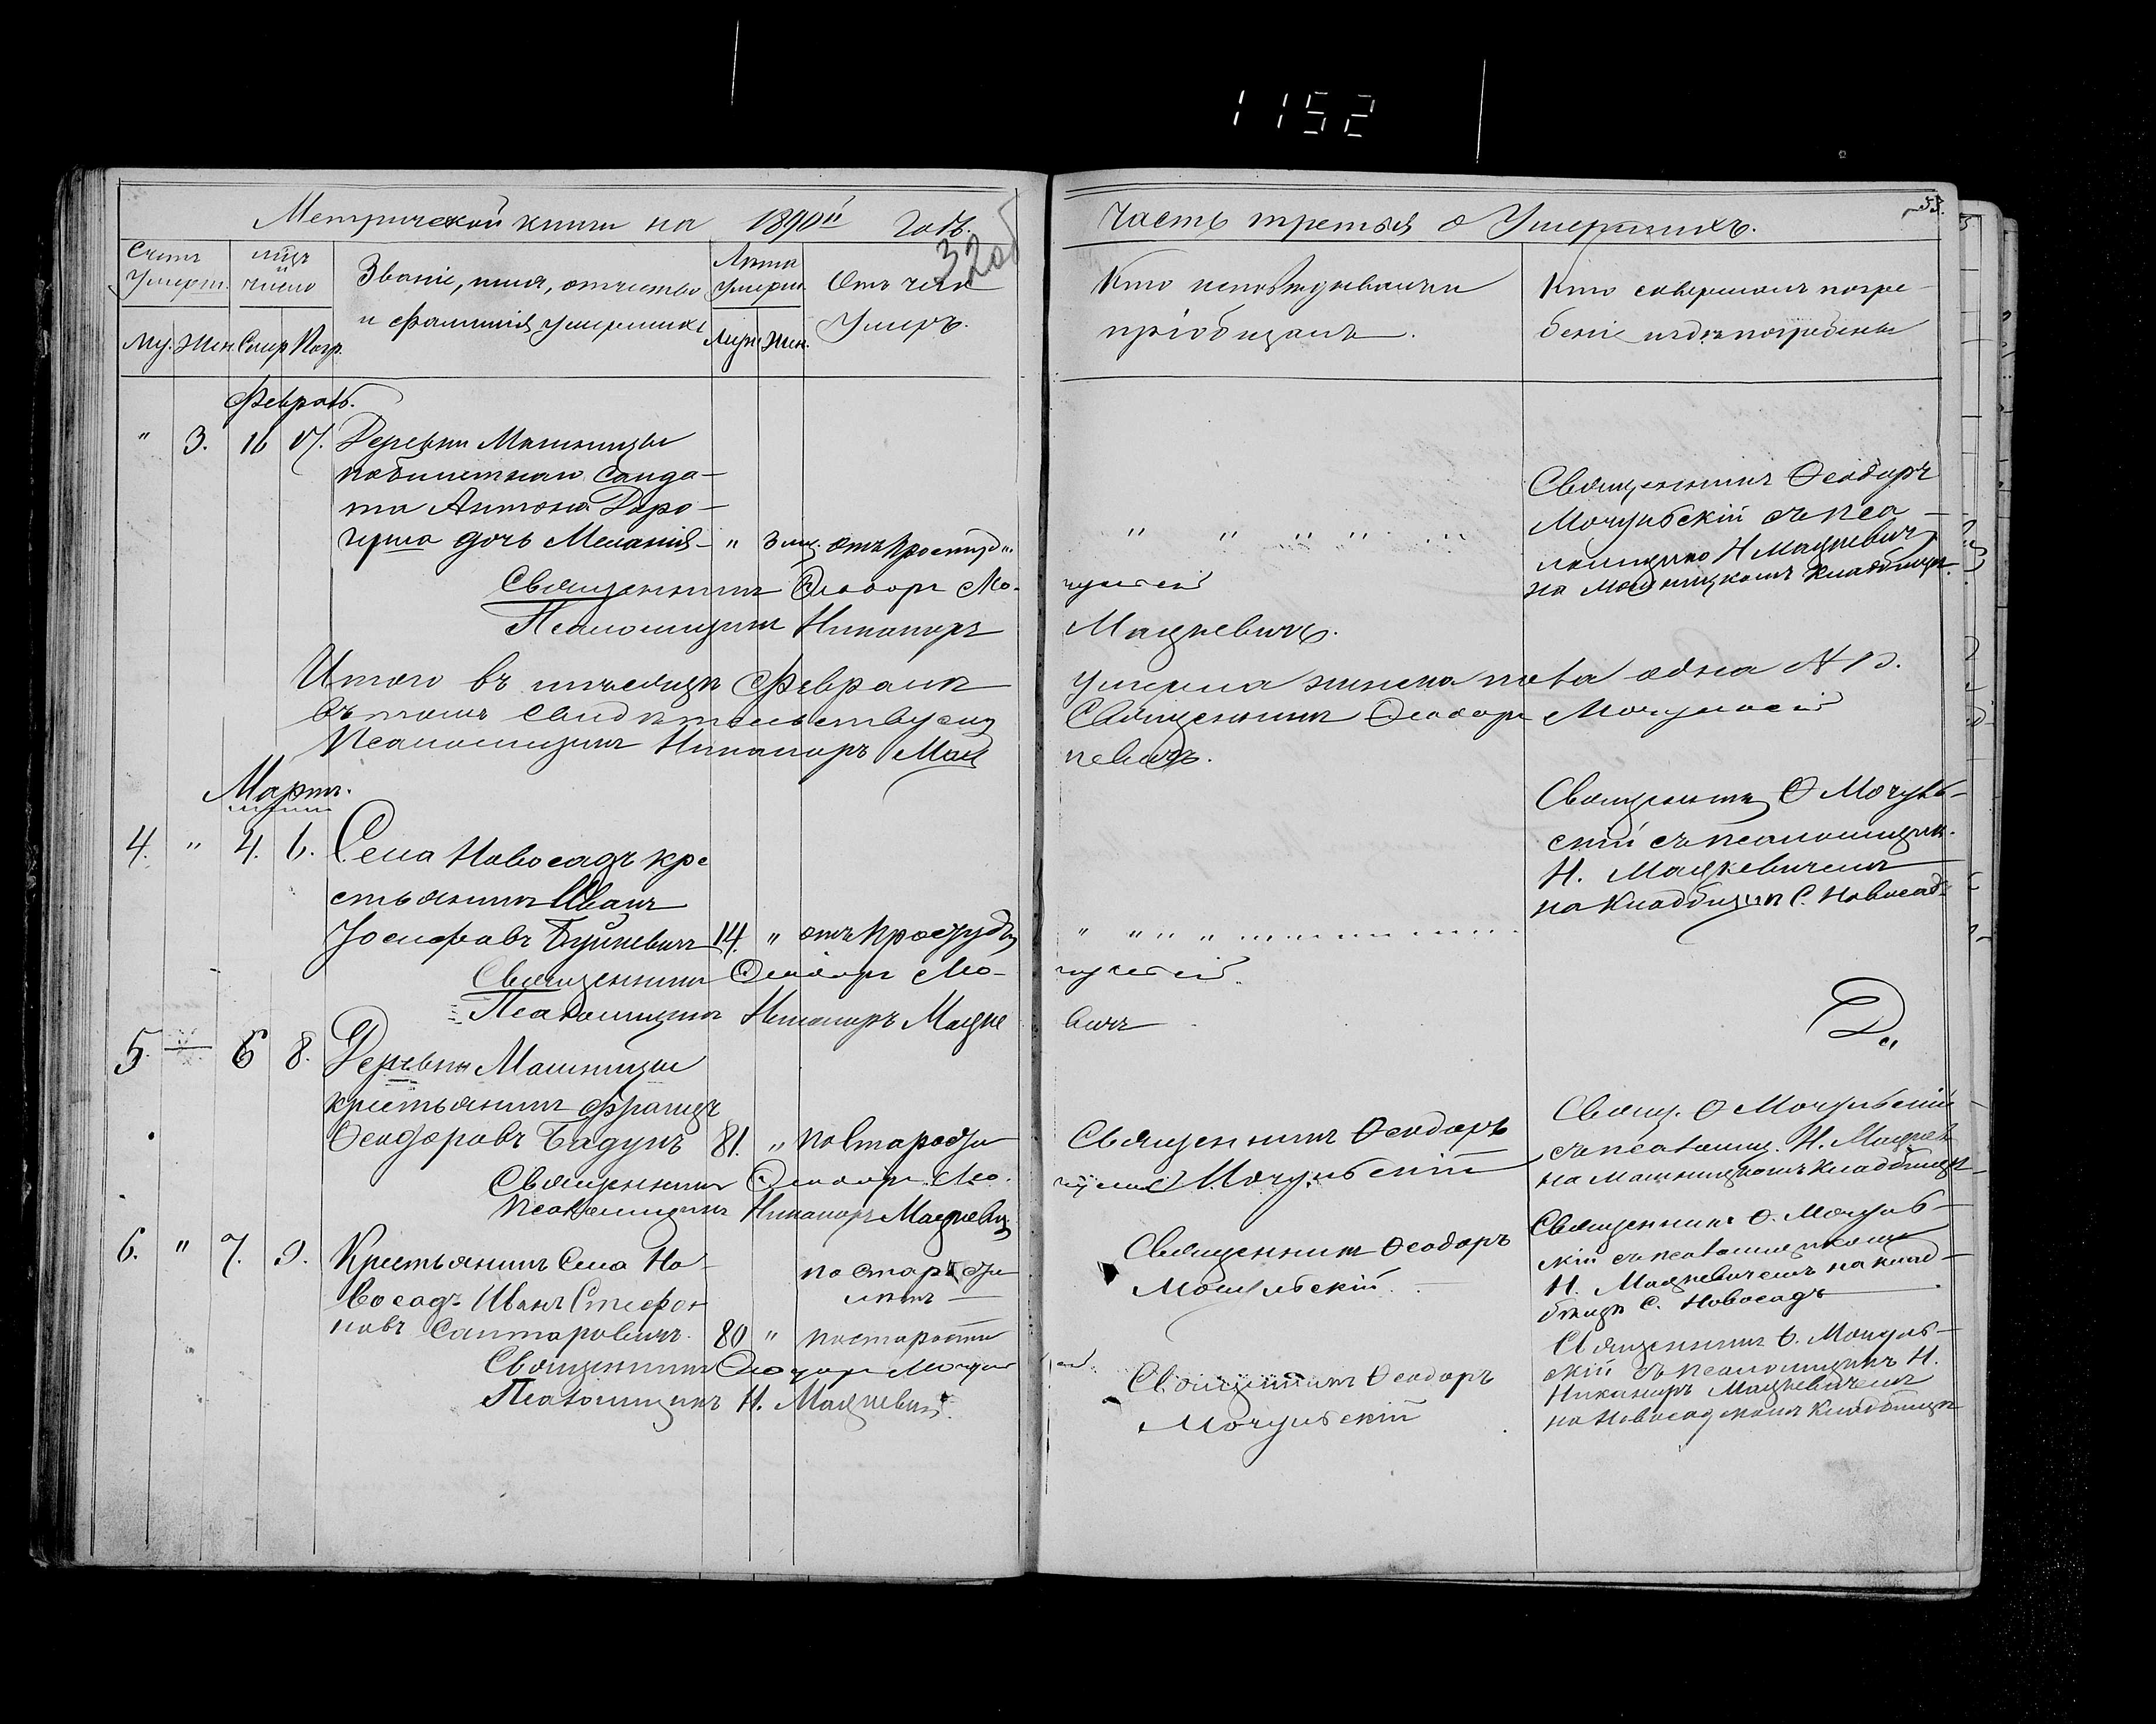 1152
Метрической книги на 1890й годъ.
32 об
Часть третья о Умершихъ.
55.
Счетъ Умерш.
мѣсяцъ и число
Званіе, имя, отчество и фамилія умершихъ
Лѣта Умерш.
Отъ чего Умеръ.
Кто исповѣдывалъ и пріобщалъ.
Кто совершалъ погребеніе и гдѣ погребены
Му. Жен. Смер. Погр.
Муж. Жен.
Февраль.
" 3. 16 17. Деревни Машницы
солда-
та Антона
дочь Меланія " 3 мц. отъ простуд"
Священникъ Ѳеодоръ Мочульскій съ пса-
Н Мацкевич
на кладбищѣ
Священникъ Ѳеодоръ Мо-
чульскій
Псаломщикъ Никаноръ
Мацкевичъ.
Итого въ мѣсяцѣ Февралѣ
умерла женска пола одна № 1.
Въ томъ свидѣтельствуемъ
Священникъ Ѳеодоръ Мочульскій
Псаломщикъ Никаноръ Мац
кевичъ.
Мартъ.
4. " 4. 6. Села Новосадъ кре
стьянинъ Иванъ
Іосифовъ 14. " отъ простуды
Священникъ Ѳ Мочуль-
скій съ псаломщик.
Н. Мацкевичемъ
на кладбищѣ С. Новосад-
Священникъ Ѳеодоръ Мо-
чульскій.
Псаломщикъ Никаноръ Мацке
вичъ
5. — 6 8. Деревни Машницы
крестьянинъ Францъ
Ѳеодоровъ Бадунъ 81. " по старости
Священникъ Ѳеодоръ
Мочульскій
Свящ. Ѳ Мочульскій
съ псаломщ. Н. Мацкев
на Машницкомъ кладбищѣ
Священникъ Ѳеодоръ Мо-
чульскій
Псаломщикъ Никаноръ Мацкевич
6. " 7. 9. Крестьянинъ Села Но-
восадъ Иванъ Стефа
новъ 80 " по старости
по старости
лѣтъ
Священникъ Ѳеодоръ
Мочульскій.
Священникъ Ѳ. Мочуль-
скій съ псаломщикомъ
Н. Мацкевичемъ на клад-
бищѣ С. Новосадъ
Священникъ Ѳеодоръ Мочульскій
Псаломщикъ Н. Мацкевичъ.
Священникъ Ѳеодоръ
Мочульскій
Священникъ Ѳ. Мочуль-
скій съ псаломщикъ Н.
Никаноръ Мацкевичемъ
на Новосадскомъ кладбищѣ